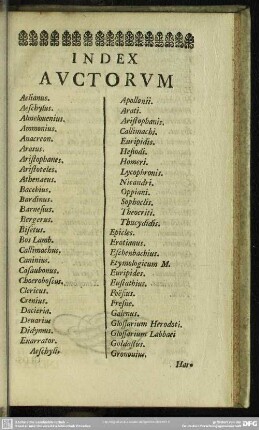 INDEX
AVCTORVM
Aelianus.
Aeschylus.
Almelouenius.
Ammonius.
Anacreon.
Aratus.
Aristophanes.
Aristoteles.
Athenaeus.
Bacchius.
Burdinus.
Barnesius.
Bergerus.
Bisetus.
Bos Lamb.
Callimachus.
Caninius.
Casaubonus.
Choeroboscus.
Clericus.
Crenius.
Dacieria.
Drusius
Didymus.
Enarrator.
Aeschyli.
Apollonii.
Arati.
Aristophanis.
Callimachi.
Euripidis.
Hesiodi.
Homeri.
Lycophronis.
Nicandri.
Oppiani.
Sophoclis.
Theocriti.
Thucydidis.
Epicles.
Erotianus.
Eschenbachius.
Etymologicum M.
Euripides.
Eustathius.
Foësius.
Fresne.
Galenus.
Glossarium Herodoti.
Glossarium Labbaei
Goldastus.
Gronouius.
Har-